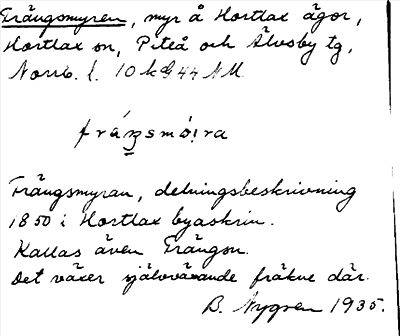 Frängsmyren, myr å Hortlax ägor,
Hortlax sn, Piteå och Älvsby tg,
Norrb. l. 10 k G 44 NM.
Frängsmyran, delningsbeskrivning
1850 i Hortlax byaskrin.
Kallas även Frängsn.
Det växer självväxande fräkne där.
B. Nygren 1935.